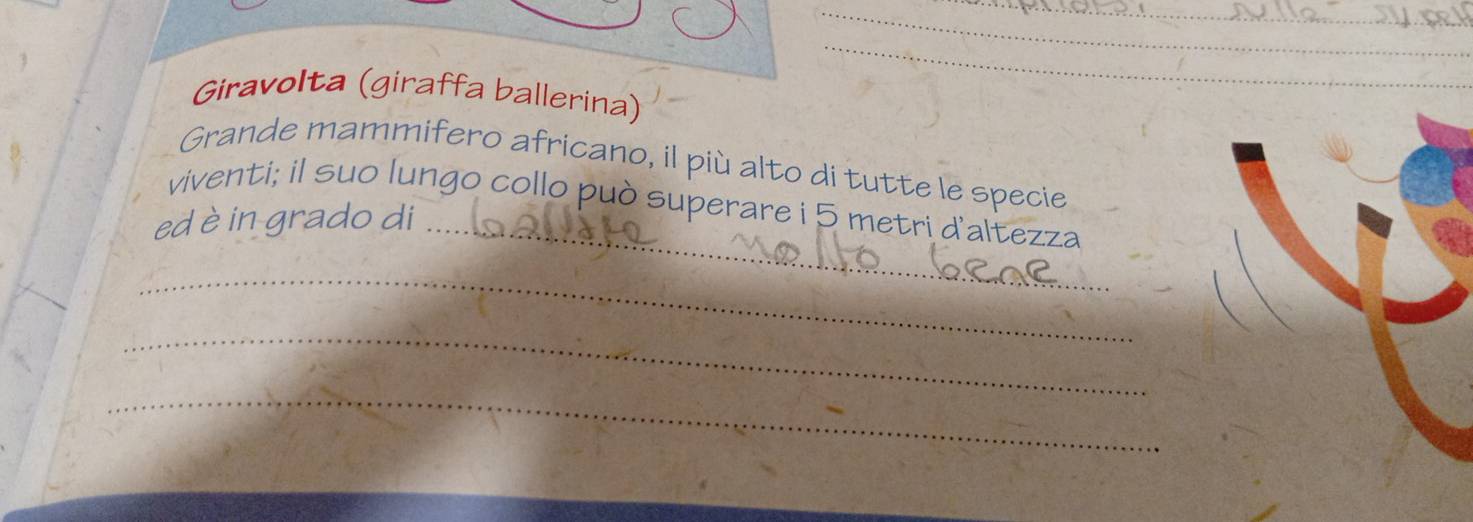 sulla
Giravolta (giraffa ballerina)
Grande mammifero africano, il più alto di tutte le specie
viventi; il suo lungo collo può superare i 5 metri d'altezza
ed è in grado di ballare molto bene